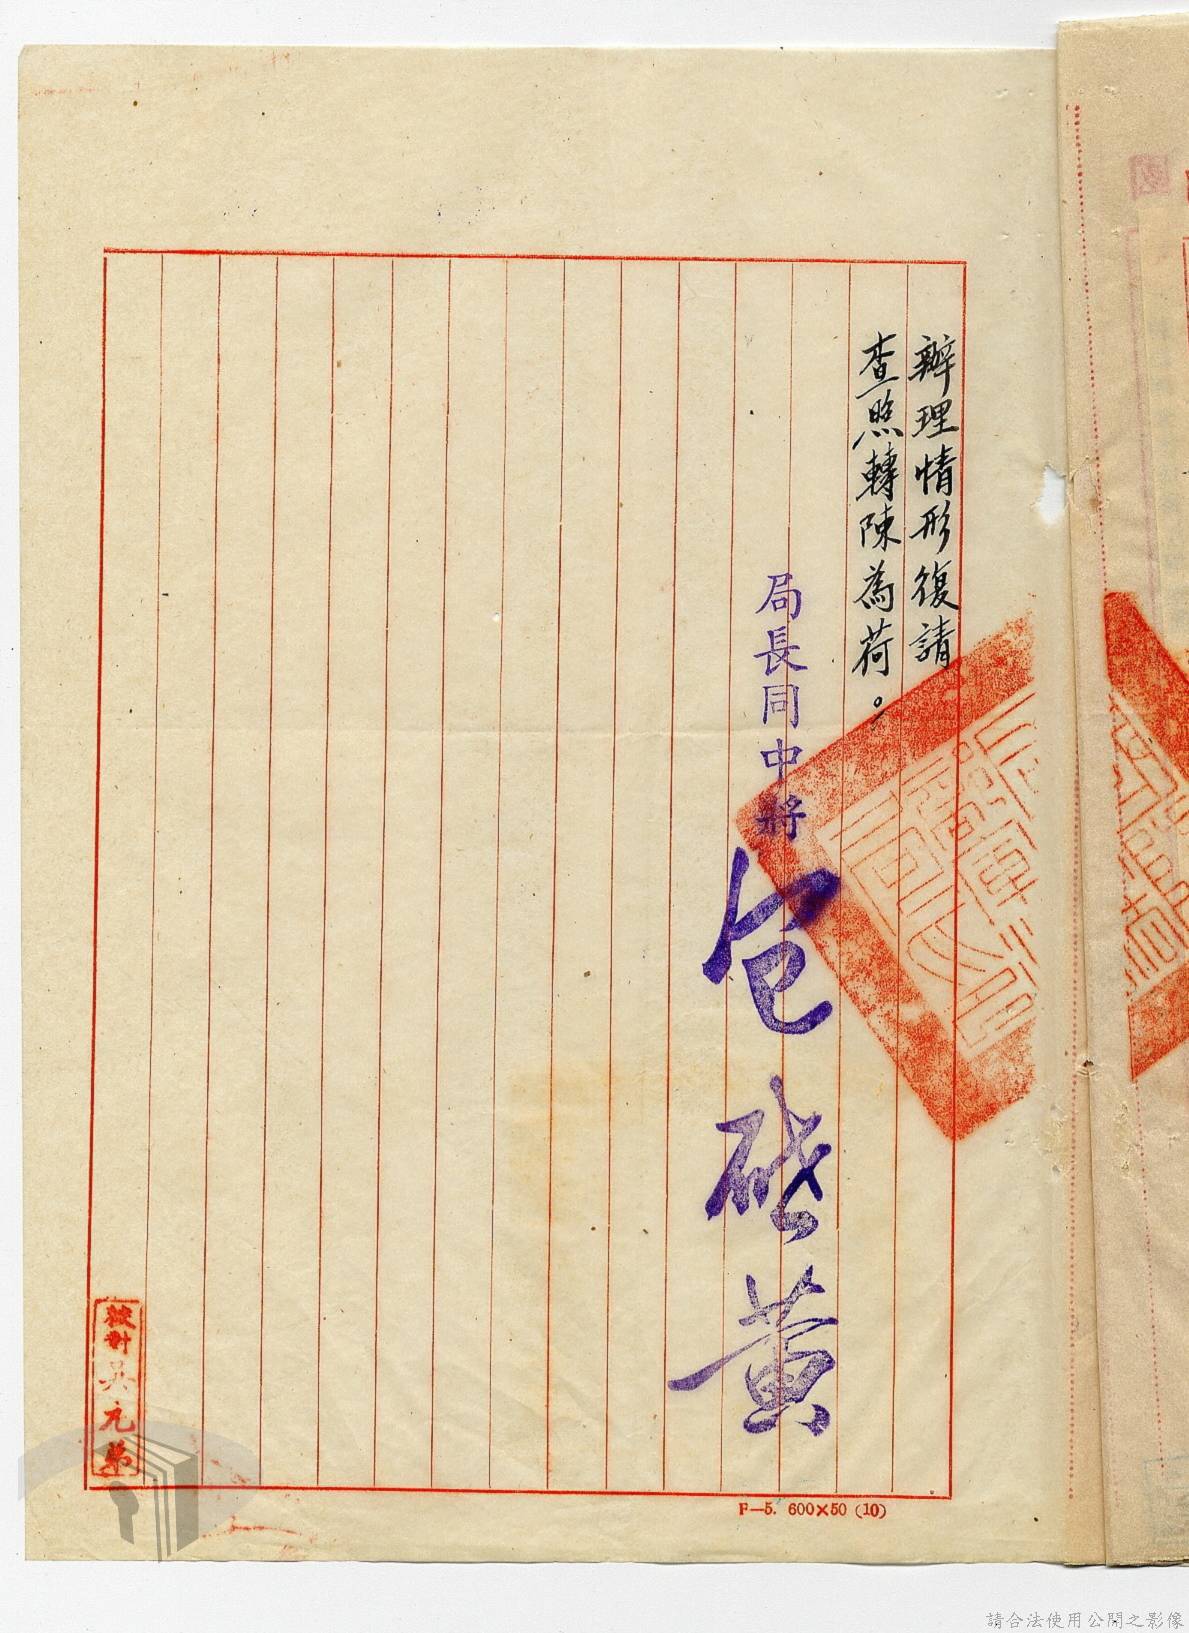 辦理情形復請
查照轉陳為荷。
局長同中將
包啟黃
校對吳元弟
F—5. 600×50 (10)
請合法使用公開之影像